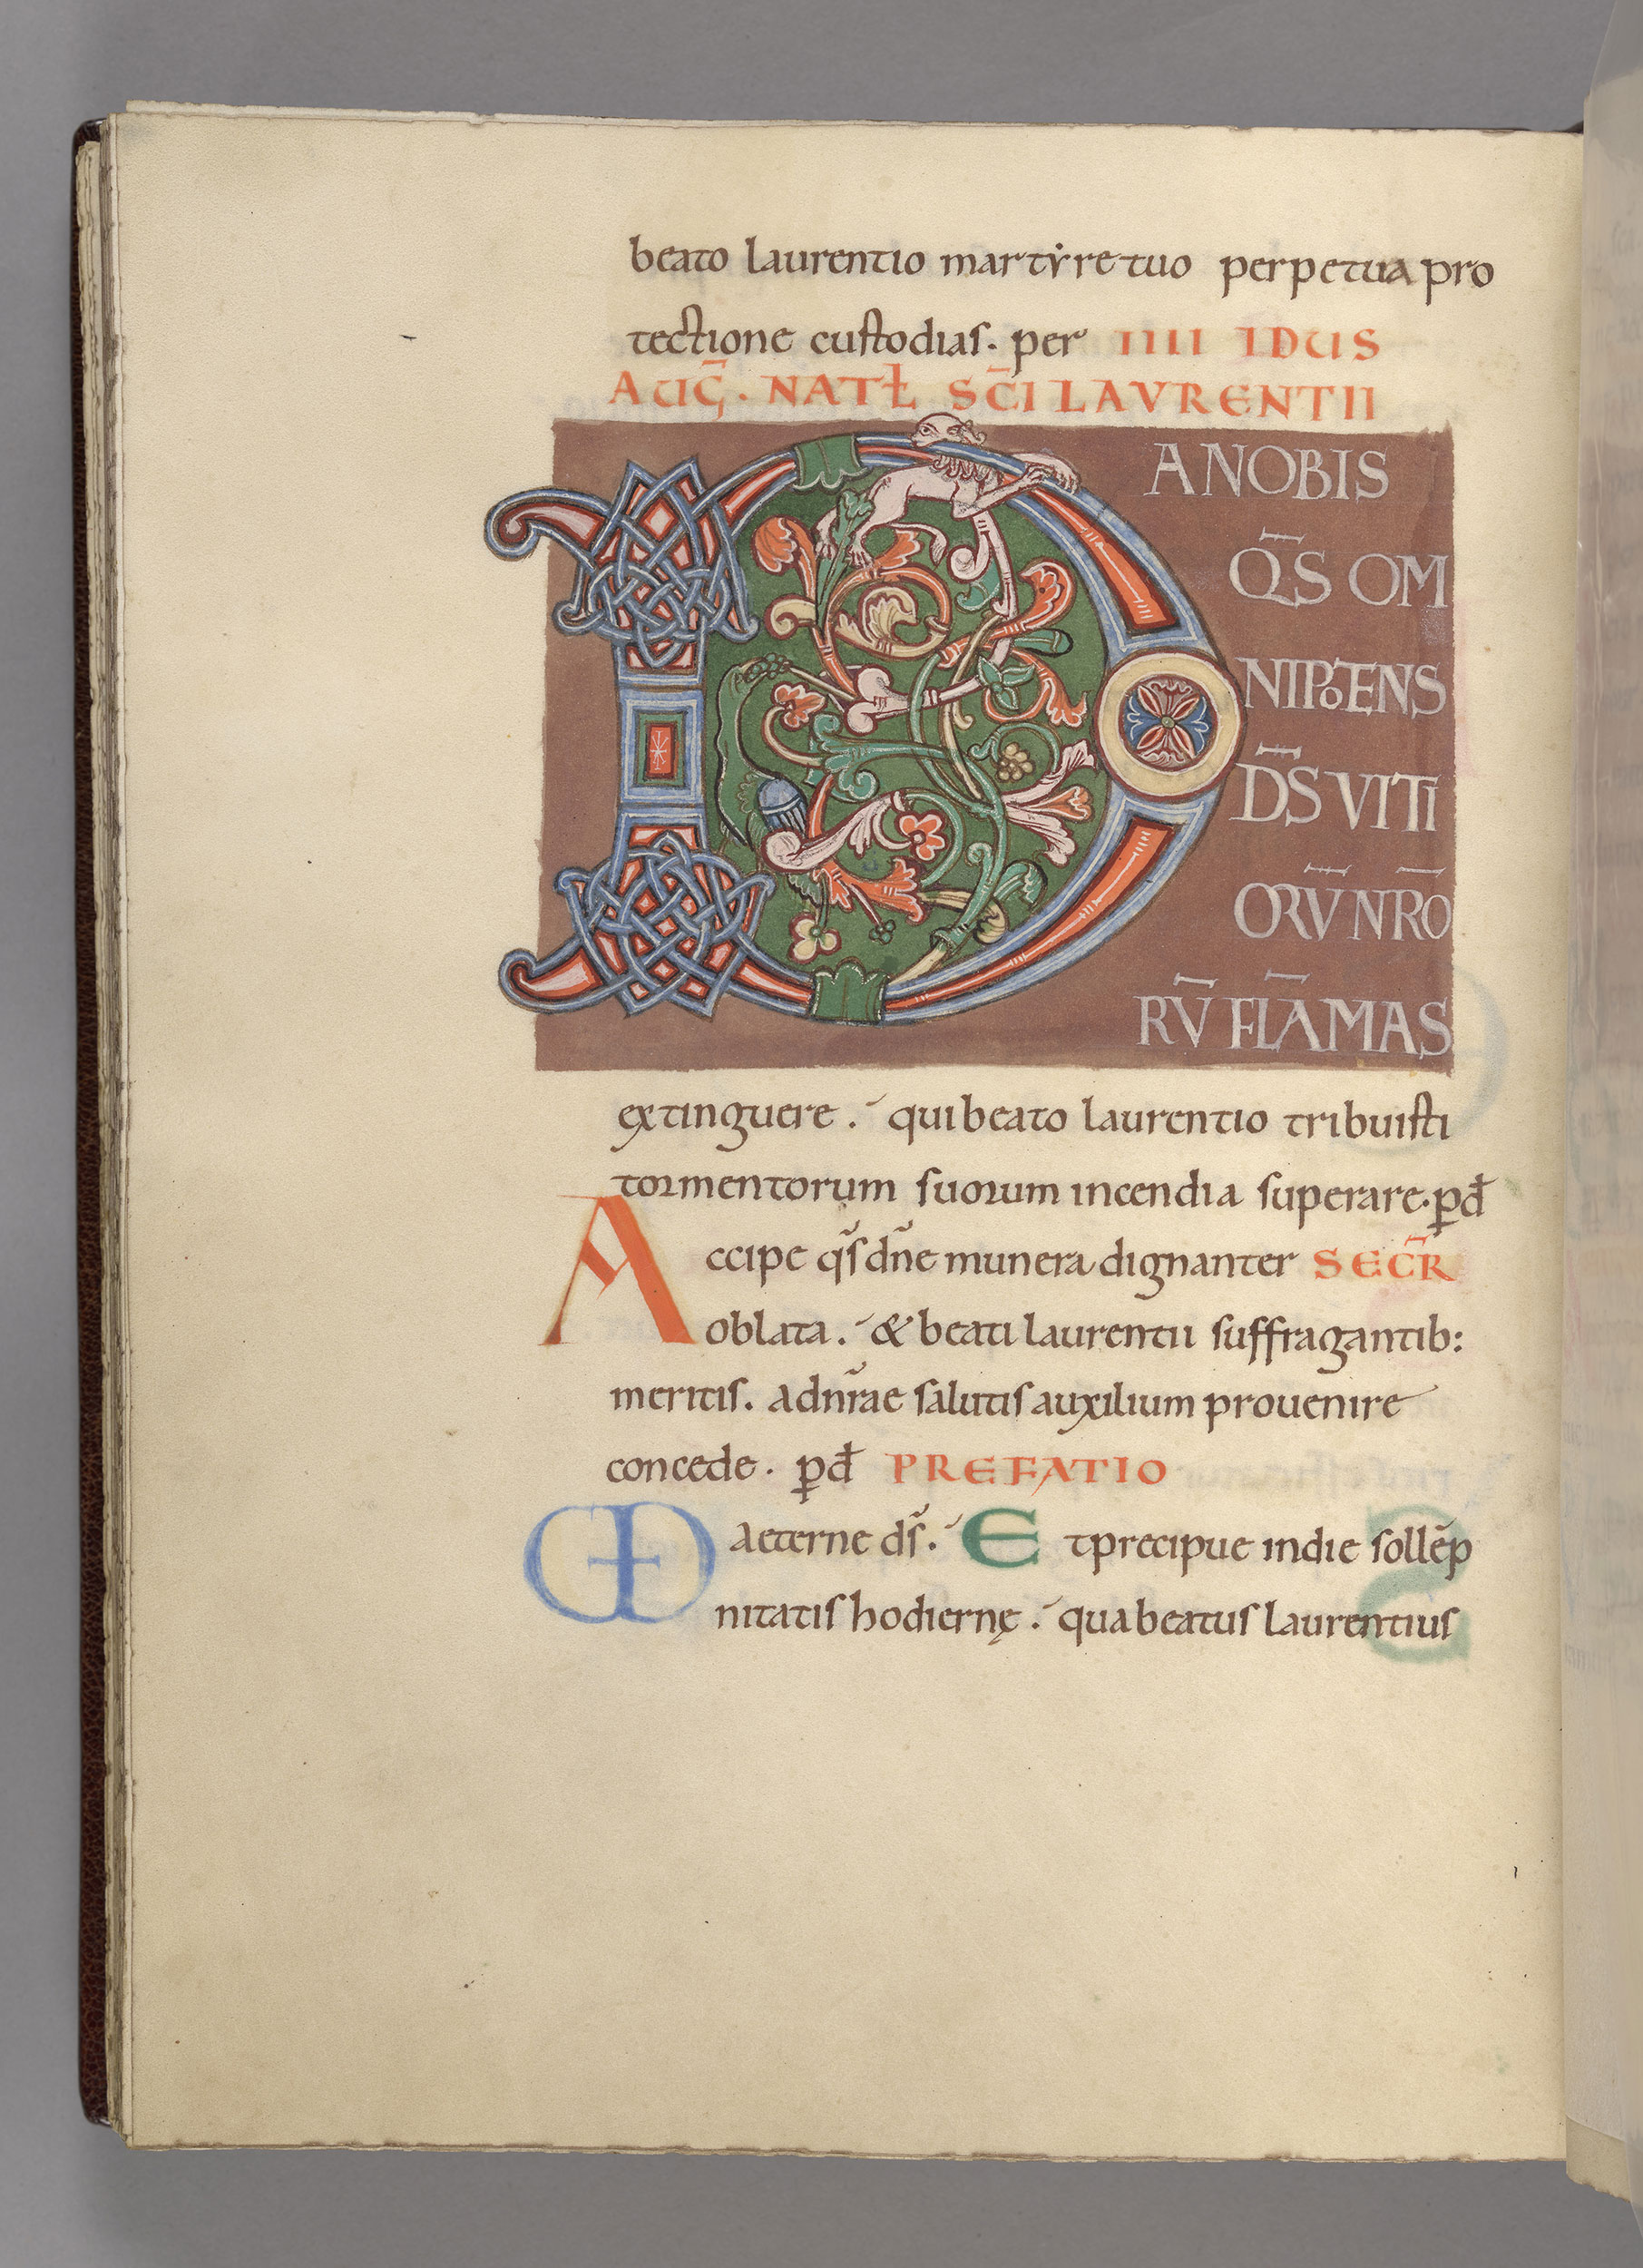 beato laurentio martẏre tuo perpetua pro
tectione custodias. per IIII IDUS
AUḠ. NATꝆ SC̄I LAVRENTII
DA NOBIS
Q̄S OM
NIPOTENS
D̄S VITI
ORV̄ NR̄O
RV̄ FLĀMAS
extinguere. qui beato laurentio tribuisti
tormentorum suorum incendia superare. p̱đ
Accipe q̄s dn̄e munera dignanter SECR̄
oblata. & beati laurentii suffragantib:
meritis. ad nr̄ae salutis auxilium prouenire
concede. p̱đ PREFATIO
VD aeterne ds̄. Et precipue in die sollēp
nitatis hodiernę. qua beatus laurentius